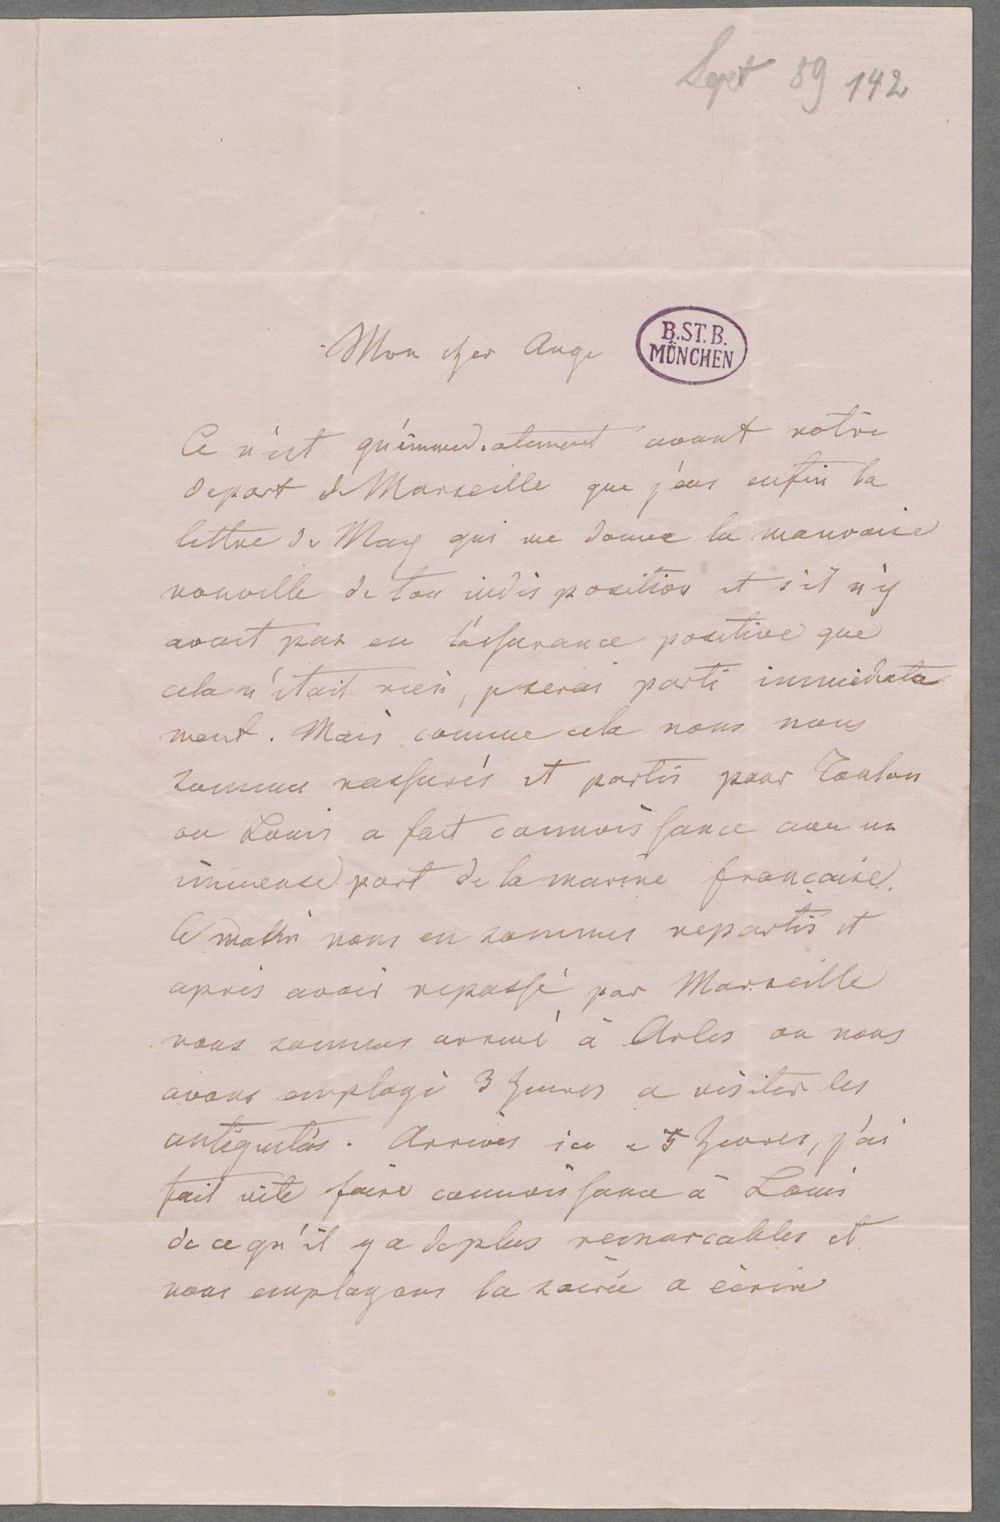 Sept 89 142
Mon cher Ange
B.ST.B.
MÜNCHEN
Ce n'est qu'immediatement avant notre
depart de Marseille que j'eus enfin la
lettre de May qui me donne la mauvaise
nouvelle de ton indisposition et s'il n'y
avait pas eu l'assurance positive que
cela n'était rien, je serai parti immediate
ment. Mais comme cela nous nous
sommes rassurés et partis pour Toulon
ou Louis a fait connoissance avec un
immense port de la marine francaise.
Ce matin nous en sommes repartis et
après avoir repassé par Marseille
nous sommes arrivé à Arles ou nous
avons employé 3 heures a visiter les
antiquités. Arrivés ici a 5 heures, j'ai
fait vite faire connoissance à Louis
de ce qu'il y a de plus remarcables et
nous employons la soirée a écrire